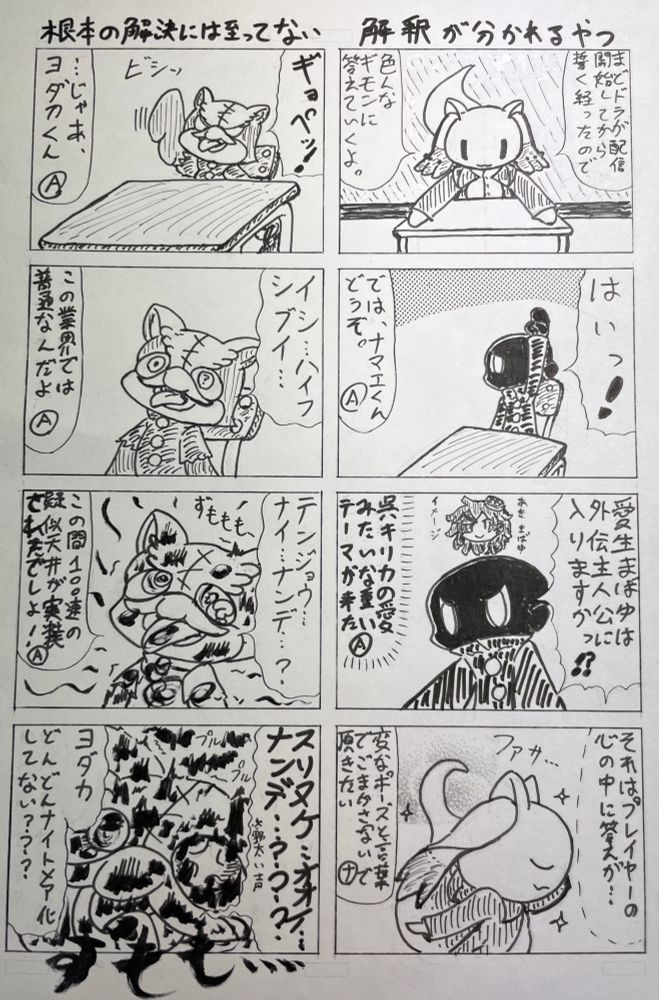 解釈が分かれるやつ
まどドラが配信
開始してから
暫く経ったので
色んな
ギモンに
答えていくよ。
はいっ!
では、ナマエくん
どうぞ。
A
愛生まばゆは
外伝主人公に
入りますかっ!?
あき まばゆ
イメージ
呉キリカの愛
みたいな重い
テーマが来た
A
それはプレイヤーの
心の中に答えが…
ファサ…
変なポーズと言葉
でごまかさないで
頂きたい
ナ
根本の解決には至ってない
ギョペッ!
ビシッ
…じゃあ、
ヨダカくん
A
イシ…ハイフ
シブイ…
この業界では
普通なんだよ
A
テンジョウ…
ナイ…ナンデ…?
ずももも…
この間100連の
疑似天井が実装
されたでしょ!
A
スリヌケ…オオイ…
ナンデ…???
プル
プル
太い声
ヨダカ
どんどんナイトメア化
してない???
ずももも…